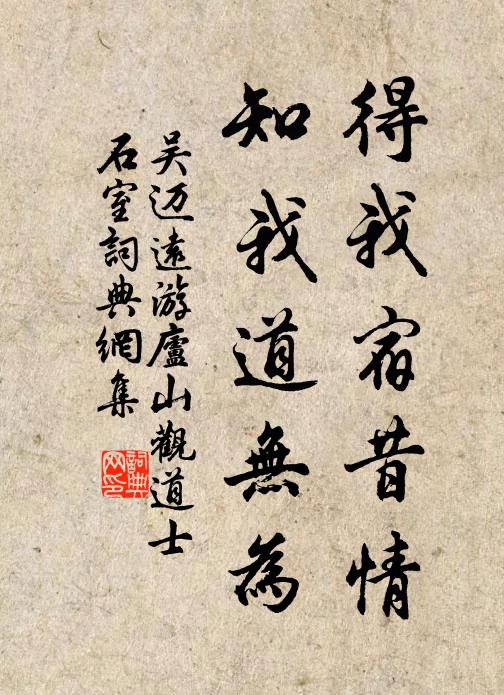 得我宿昔情
知我道無為
吴迈遠游廬山觀道士
石室詞典網集
詞典
网印